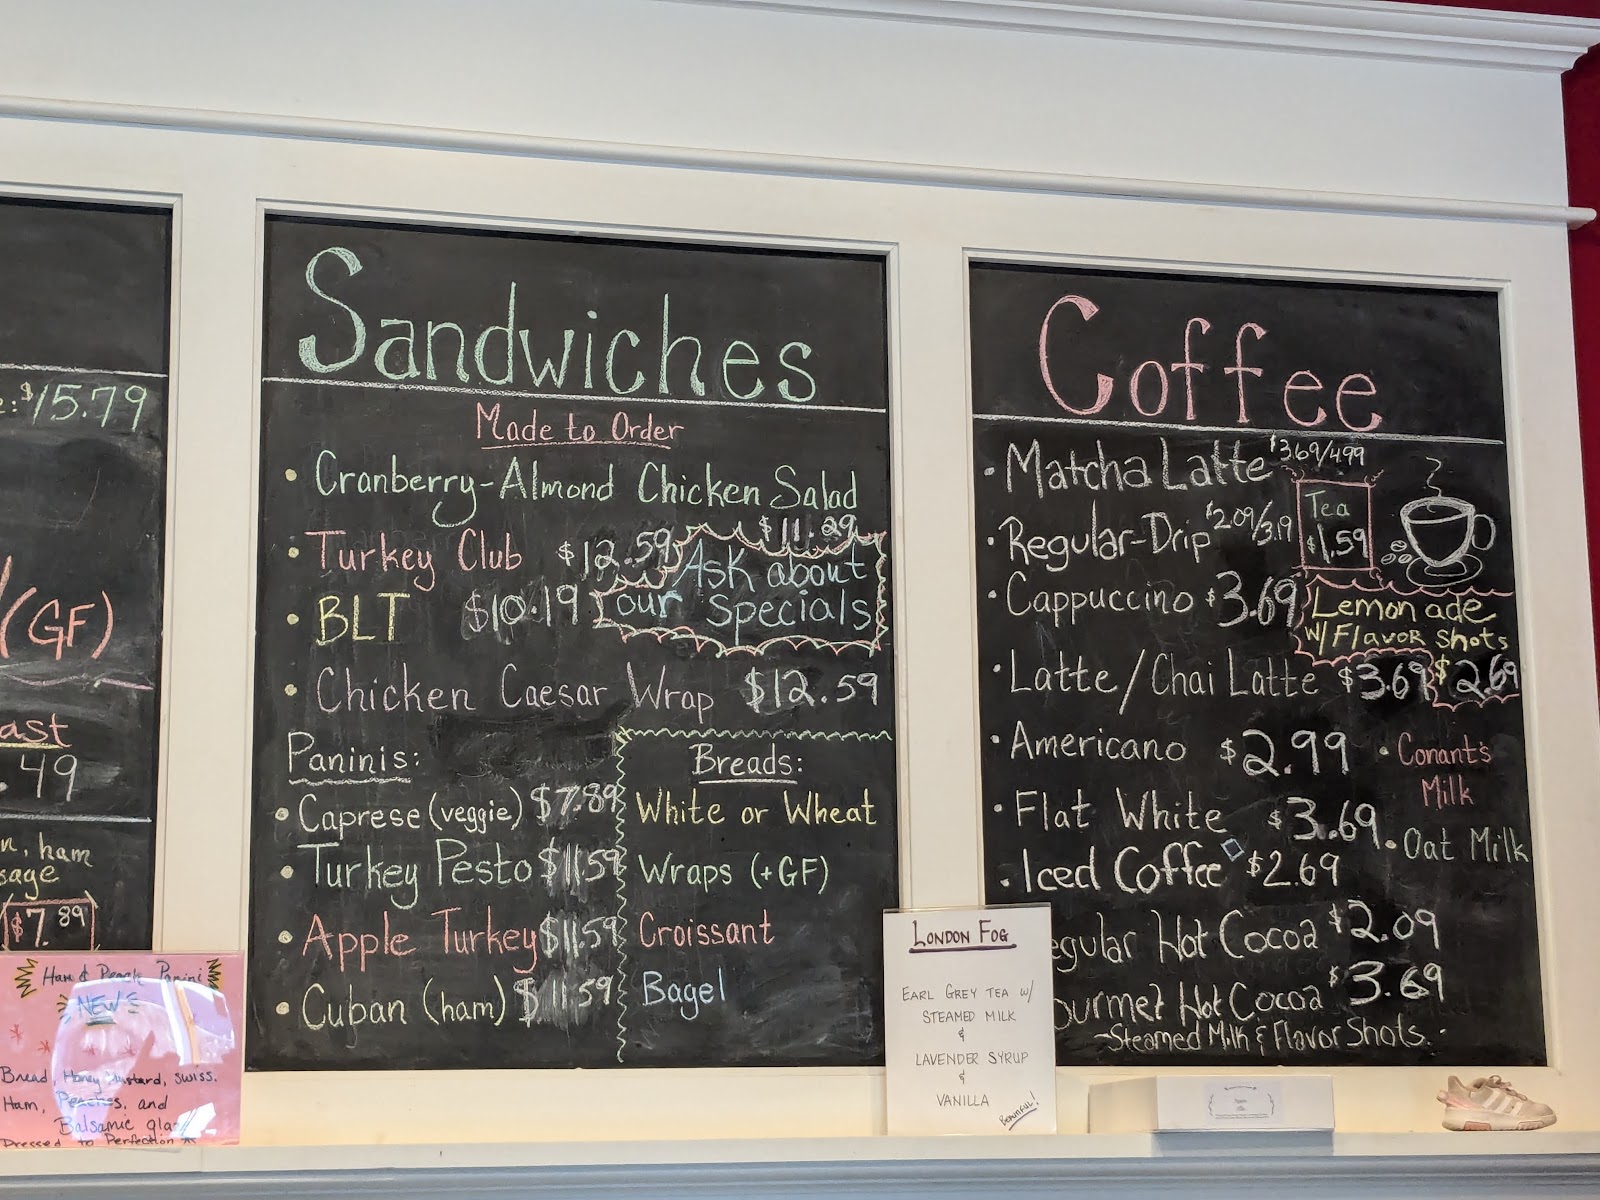 $15.79
(GF)
ast
.49
n, ham
sage
$7.89
Ham & Peach Panini
NEW
Bread, Honey Mustard, swiss.
Ham, Peaches, and
Balsamic
Pressed to Perfection
Sandwiches
Made to Order
• Cranberry-Almond Chicken Salad
$11.29
• Turkey Club $12.59
• BLT $10.19
Ask about
our specials
• Chicken Caesar Wrap $12.59
Paninis:
• Caprese (veggie) $7.89
• Turkey Pesto $11.59
• Apple Turkey $11.59
• Cuban (ham) $11.59
Breads:
White or Wheat
Wraps (+GF)
Croissant
Bagel
Coffee
• Matcha Latte $3.69/4.99
• Regular-Drip $2.09/3.19
Tea
$1.59
• Cappuccino $3.69
Lemonade
w/ Flavor Shots
$2.69
• Latte/Chai Latte $3.69
• Americano $2.99
• Conant's
Milk
• Flat White $3.69
• Oat Milk
• Iced Coffee $2.69
egular Hot Cocoa $2.09
ourmet Hot Cocoa $3.69
-Steamed Milk & Flavor Shots.
London Fog
Earl Grey tea w/
steamed milk
&
lavender syrup
&
vanilla
Beautiful!